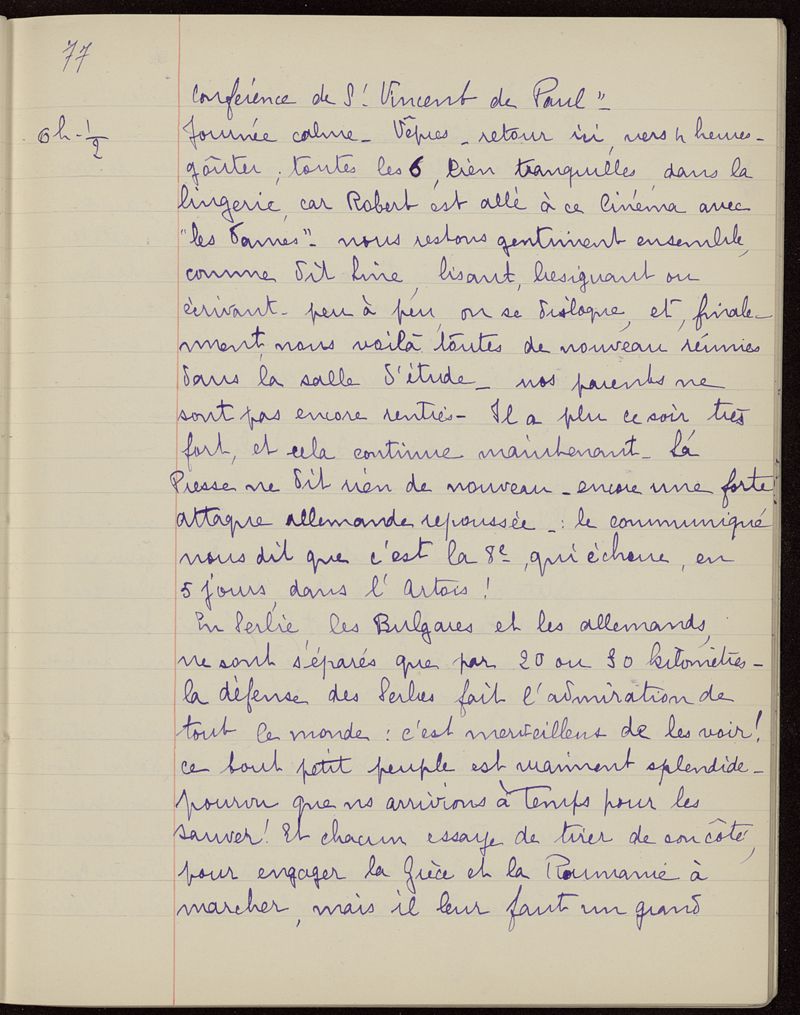 77
conférence de St Vincent de Paul"-
6h-1/2
Journée calme - Vêpres - retour ici, vers 4 heures -
goûter ; toutes les 6, bien tranquilles, dans la
lingerie, car Robert est allé à ce Cinéma avec
"les Dames" - nous restons gentiment ensemble,
comme dit Line, lisant, besignant ou
écrivant - peu à peu, on se disloque, et, finale-
ment, nous voilà toutes de nouveau réunies
dans la salle d'étude - nos parents ne
sont pas encore rentrés - Il a plu ce soir, très
fort, et cela continue maintenant - La
Presse ne dit rien de nouveau - encore une forte
attaque allemande repoussée - : le communiqué
nous dit que c'est la 8e, qui échoue, en
5 jours, dans l'Artois !
En Serbie, les Bulgares et les allemands,
ne sont séparés que par 20 ou 30 kilomètres -
la défense des Serbes fait l'admiration de
tout le monde : c'est merveilleux de les voir !
ce tout petit peuple est vraiment splendide -
pourvu que ns arrivions à temps pour les
sauver ! Et chacun essaye de tirer de son côté,
pour engager la Grèce et la Roumanie à
marcher, mais il leur faut un grand